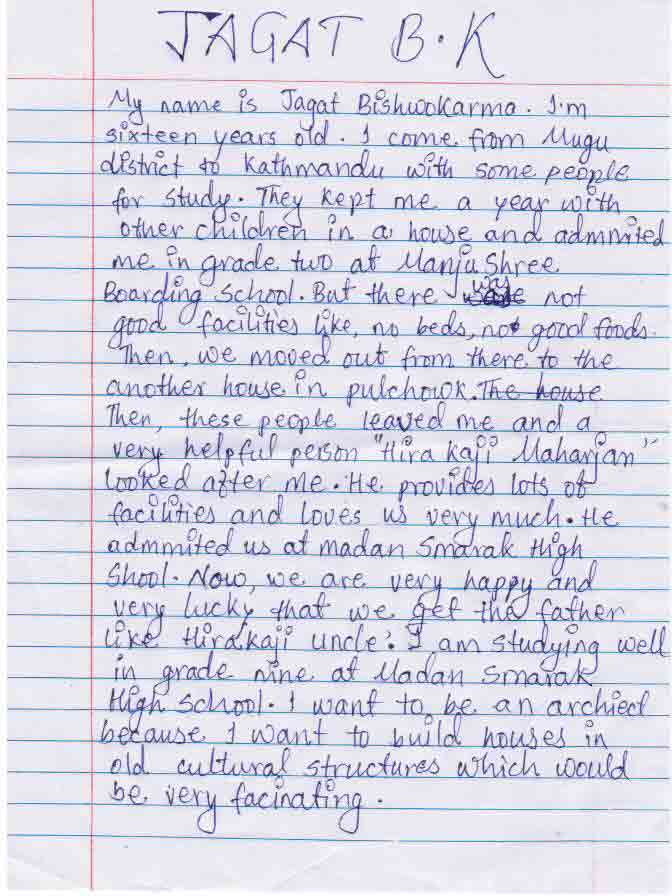 JAGAT B.K
My name is Jagat Bishwokarma. I'm
sixteen years old. I come from Mugu
district to Kathmandu with some people
for study. They kept me a year with
other children in a house and admmited
me in grade two at Manju Shree
Boarding School. But there was not
good facilities like, no beds, not good foods.
Then, we moved out from there to the
another house in pulchowk. The house
Then, these people leaved me and a
very helpful person "Hira kaji Maharjan"
looked after me. He provides lots of
facilities and loves us very much. He
admmited us at madan Smarak High
Shool. Now, we are very happy and
very lucky that we get the father
like Hirakaji uncle. I am studying well
in grade nine at Madan Smarak
High School. I want to be an archiect
because I want to build houses in
old cultural structures which would
be very facinating.